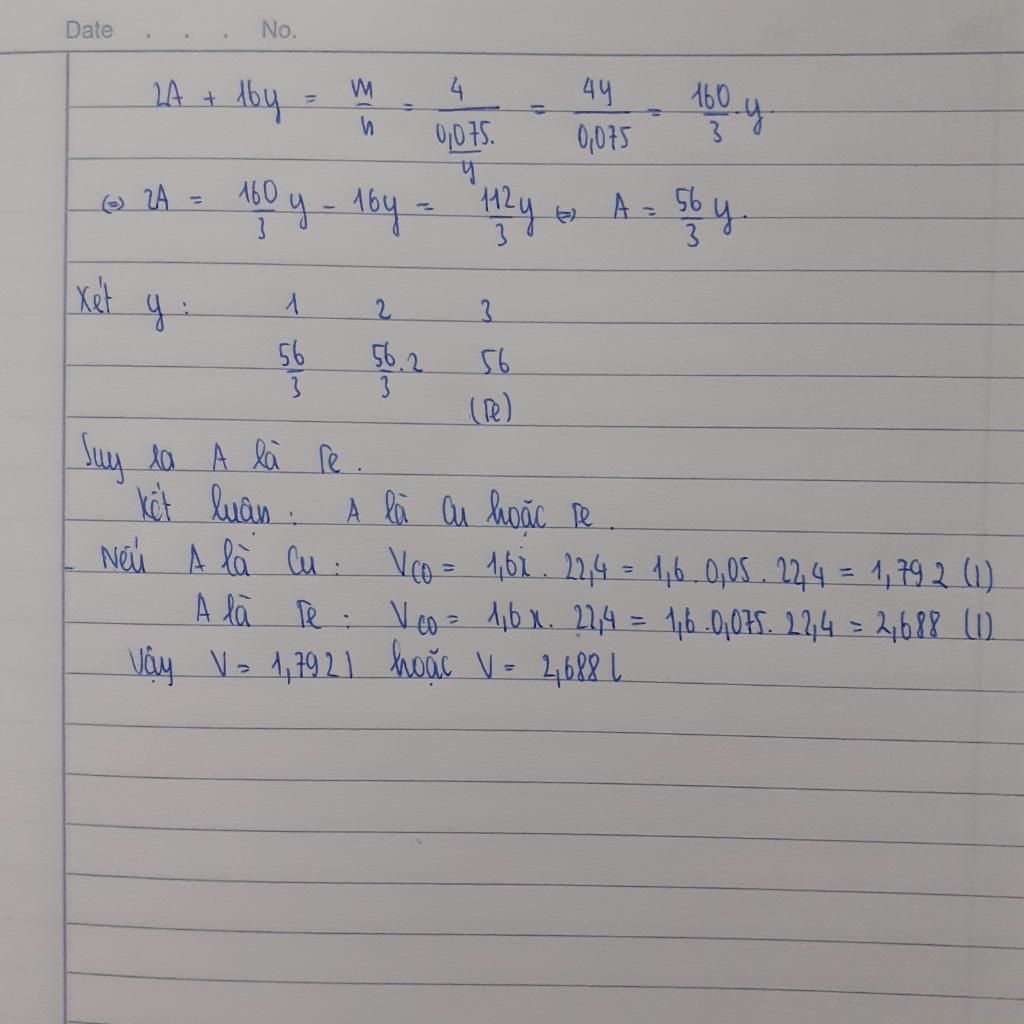 Date . . . No.
2A + 16y = m/n = 4/(0,075/y) = 4y/0,075 = 160/3 . y
⇔ 2A = 160/3 y - 16y = 112/3 y ⇔ A = 56/3 y.
Xét y : 1 2 3
56/3 56/3 . 2 56
(Fe)
Suy ra A là Fe.
Kết luận : A là Cu hoặc Fe.
- Nếu A là Cu : VCO = 1,6x . 22,4 = 1,6 . 0,05 . 22,4 = 1,792 (l)
A là Fe : VCO = 1,6x . 22,4 = 1,6 . 0,075 . 22,4 = 2,688 (l)
Vậy V = 1,792 l hoặc V = 2,688 l